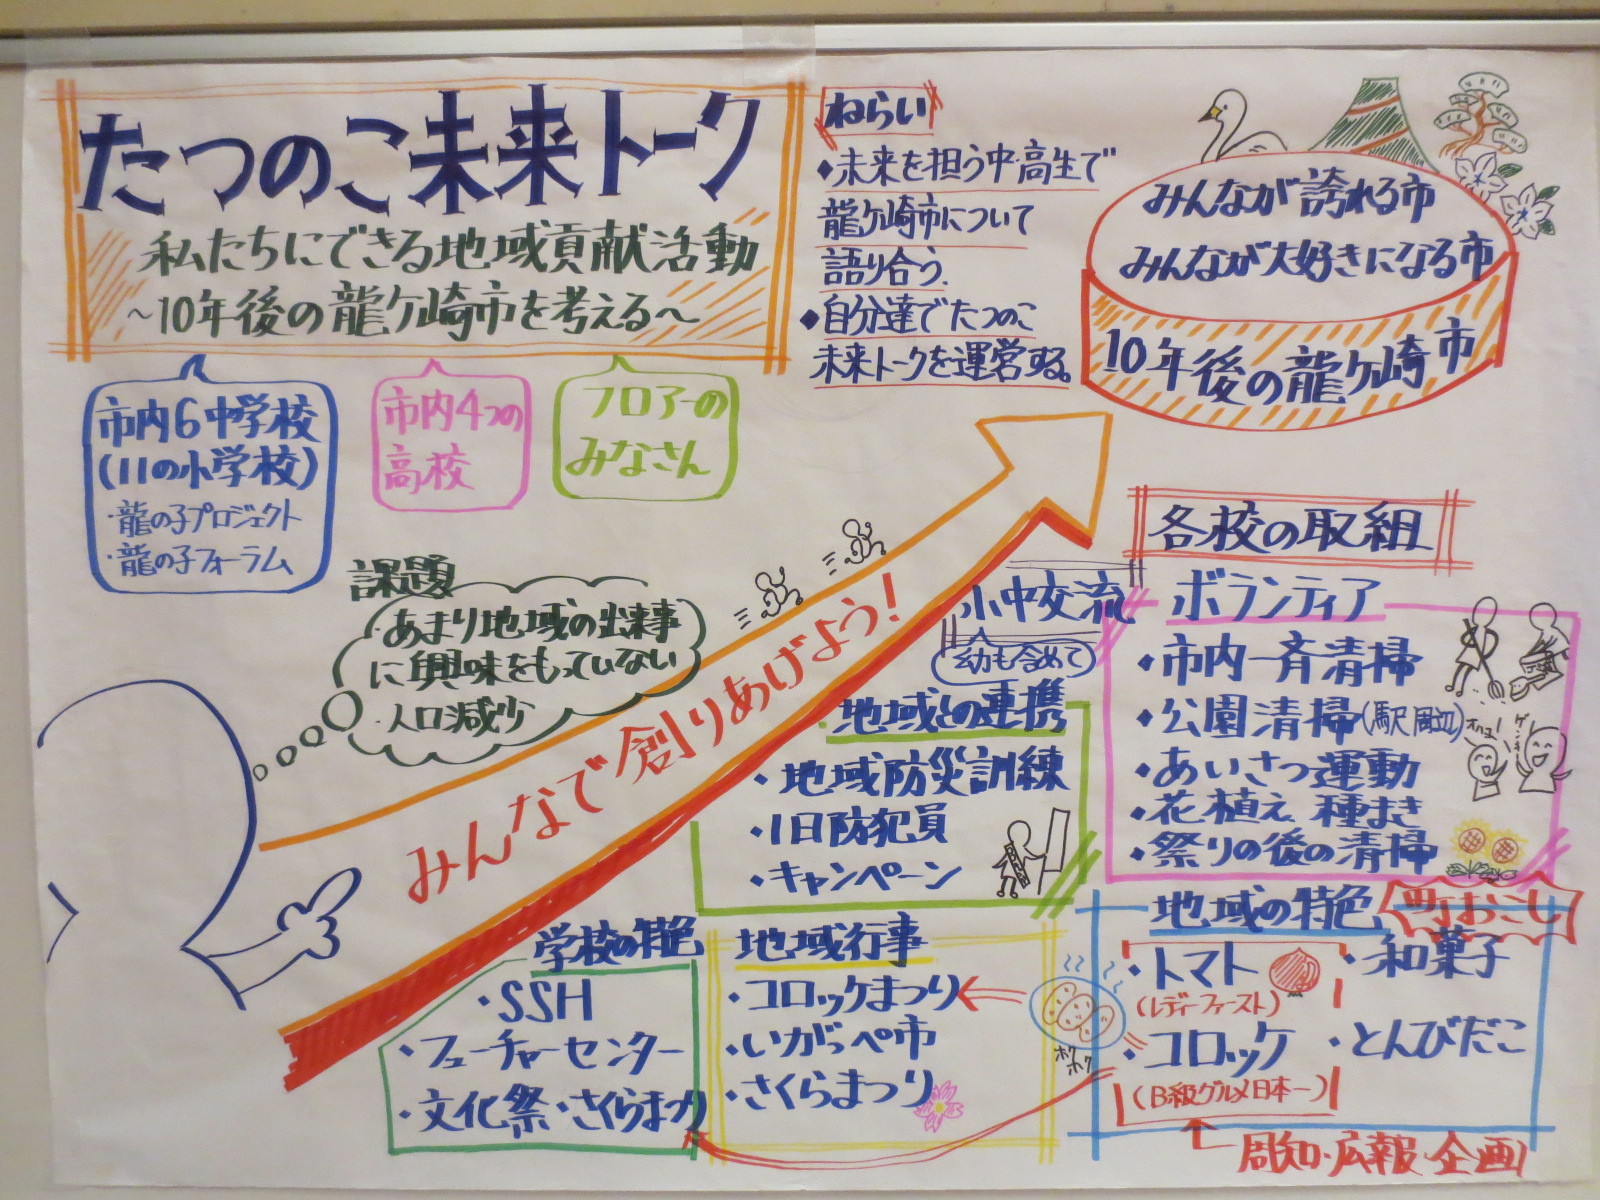 たつのこ未来トーク
私たちにできる地域貢献活動
～10年後の龍ケ崎市を考える～
市内6中学校
(11の小学校)
・龍の子プロジェクト
・龍の子フォーラム
市内4つの
高校
フロアーの
みなさん
ねらい
◆未来を担う中・高生で
龍ケ崎市について
語り合う.
◆自分達でたつのこ
未来トークを運営する。
みんなが誇れる市
みんなが大好きになる市
10年後の龍ケ崎市
課題
・あまり地域の出来事
に興味をもっていない
・人口減少
みんなで創りあげよう!
各校の取組
小中交流
幼も含めて
ボランティア
・市内一斉清掃
・公園清掃(駅周辺)
・あいさつ運動
・花植え 種まき
・祭りの後の清掃
地域との連携
・地域防災訓練
・1日防犯員
・キャンペーン
学校の特色
・SSH
・フューチャーセンター
・文化祭・さくらまつり
地域行事
・コロッケまつり
・いがっぺ市
・さくらまつり
ホクホク
地域の特色
町おこし
・トマト
(レディーファースト)
・和菓子
・コロッケ
(B級グルメ日本一)
・とんびだこ
周知・広報・企画